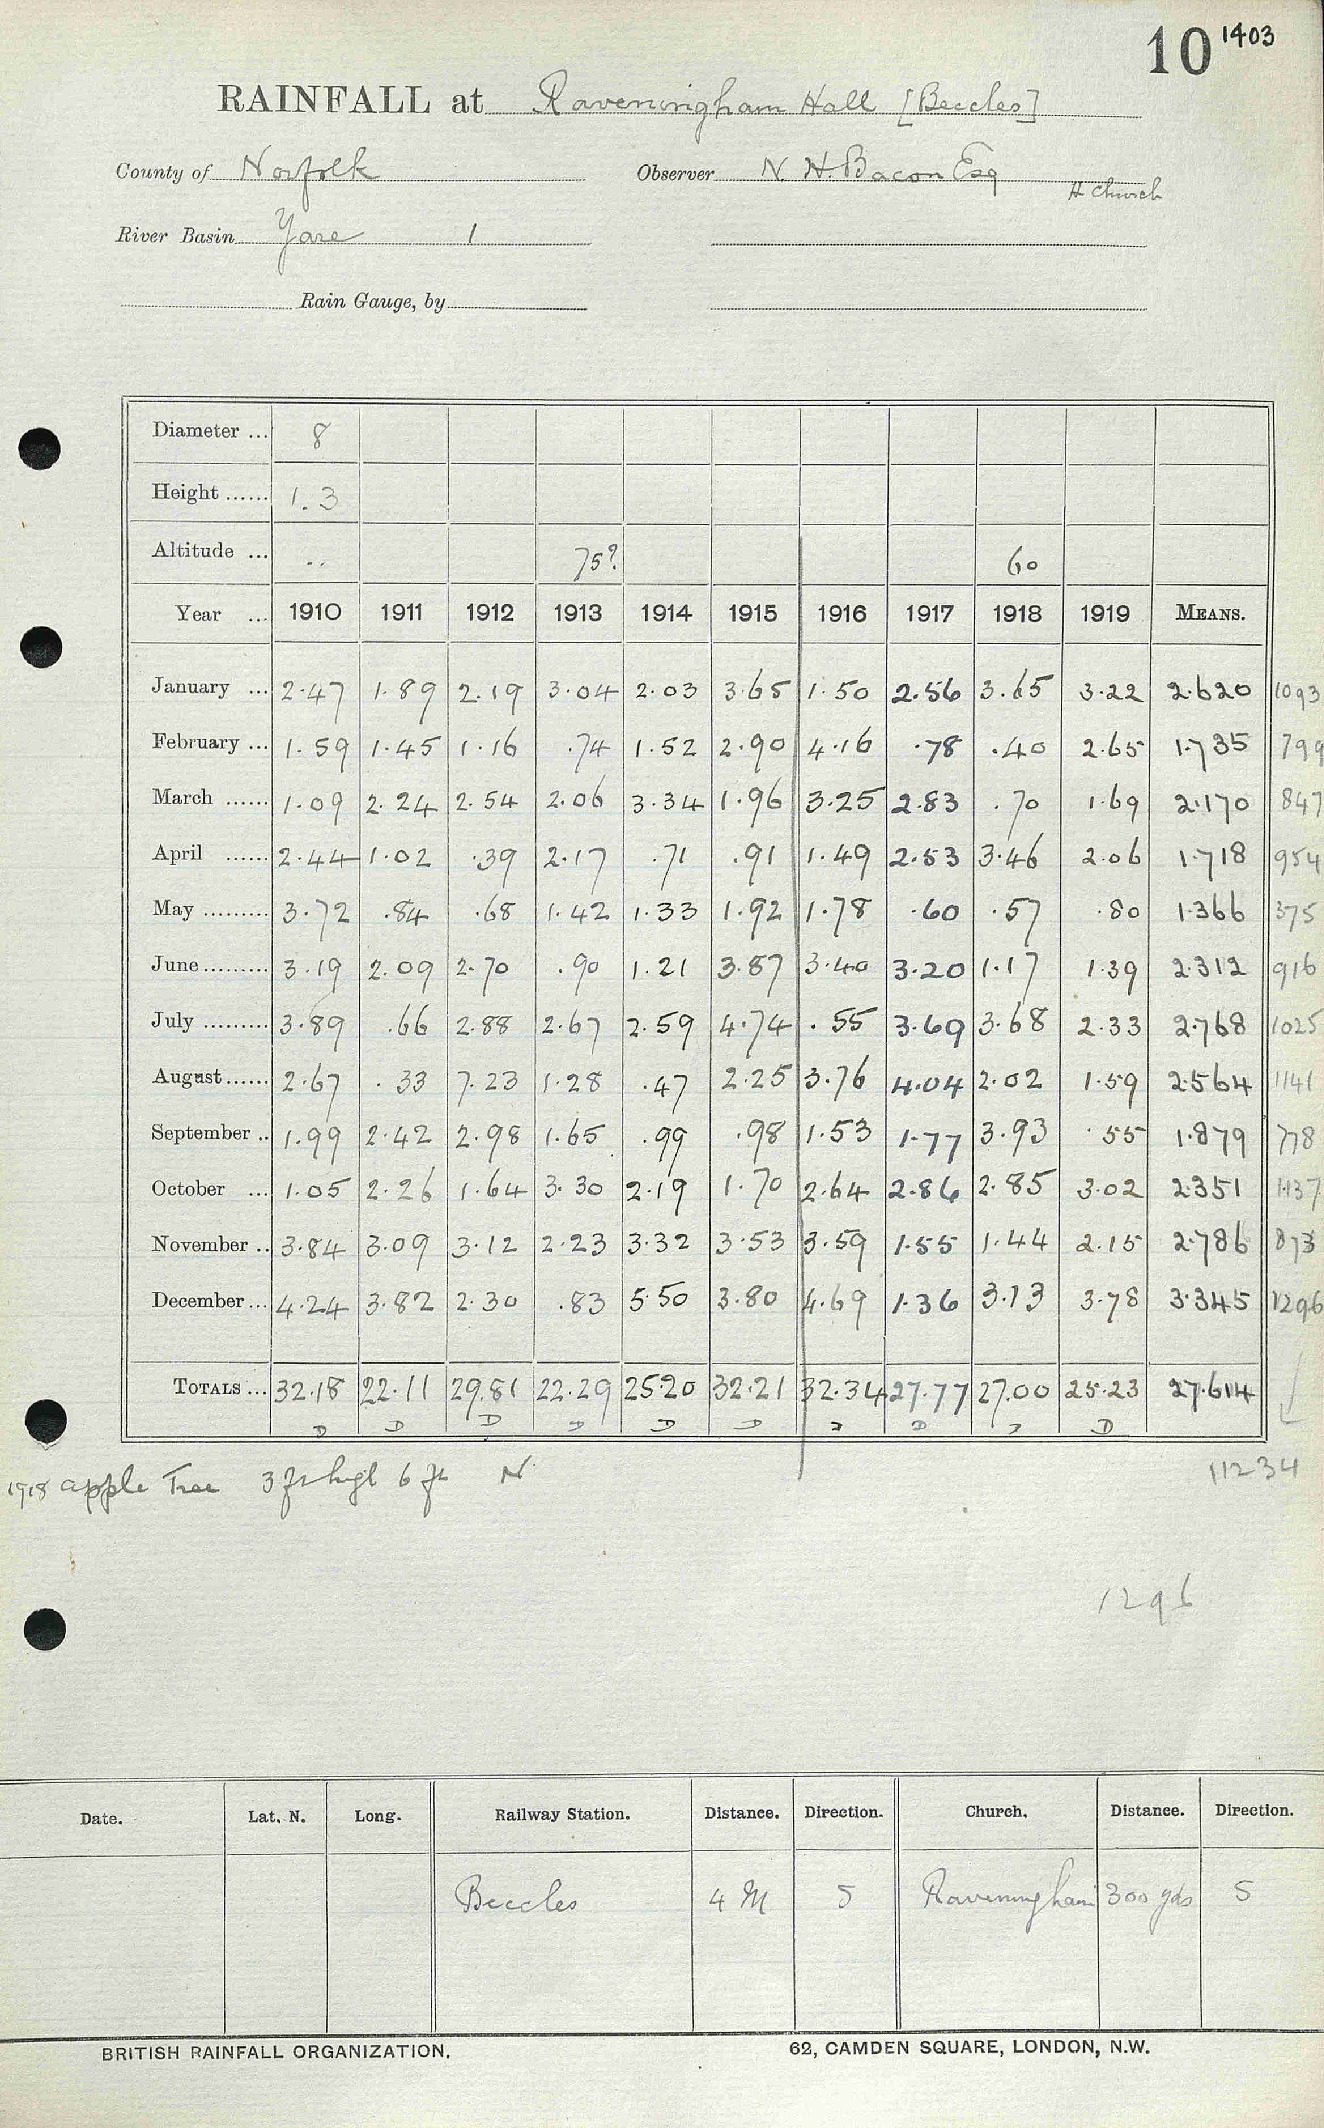 10 1403
RAINFALL at Raveningham Hall [Beccles]
County of Norfolk Observer N. H. Bacon Esq
H Church
River Basin Yare 1
Rain Gauge, by
Diameter ... 8
Height ...... 1.3
Altitude ... .. 75? 60
Year ... 1910 1911 1912 1913 1914 1915 1916 1917 1918 1919 MEANS.
January ... 2.47 1.89 2.19 3.04 2.03 3.65 1.50 2.56 3.65 3.22 2.620 1093
February ... 1.59 1.45 1.16 .74 1.52 2.90 4.16 .78 .40 2.65 1.735 799
March ...... 1.09 2.24 2.54 2.06 3.34 1.96 3.25 2.83 .70 1.69 2.170 847
April ...... 2.44 1.02 .39 2.17 .71 .91 1.49 2.53 3.46 2.06 1.718 954
May ......... 3.72 .84 .68 1.42 1.33 1.92 1.78 .60 .57 .80 1.366 375
June ......... 3.19 2.09 2.70 .90 1.21 3.87 3.40 3.20 1.17 1.39 2.312 916
July ......... 3.89 .66 2.88 2.67 2.59 4.74 .55 3.69 3.68 2.33 2.768 1025
August ...... 2.67 .33 7.23 1.28 .47 2.25 3.76 4.04 2.02 1.59 2.564 1141
September .. 1.99 2.42 2.98 1.65 .99 .98 1.53 1.77 3.93 .55 1.879 778
October ... 1.05 2.26 1.64 3.30 2.19 1.70 2.64 2.86 2.85 3.02 2.351 1137
November .. 3.84 3.09 3.12 2.23 3.32 3.53 3.59 1.55 1.44 2.15 2.786 873
December ... 4.24 3.82 2.30 .83 5.50 3.80 4.69 1.36 3.13 3.78 3.345 1296
TOTALS ... 32.18 22.11 29.81 22.29 25.20 32.21 32.34 27.77 27.00 25.23 27.614
D D D D D D D D D D
1918 apple Tree 3 ft high 6 ft N 11234
1296
Date. Lat. N. Long. Railway Station. Distance. Direction. Church. Distance. Direction.
Beccles 4 M S Raveningham 300 yds S
BRITISH RAINFALL ORGANIZATION. 62, CAMDEN SQUARE, LONDON, N.W.